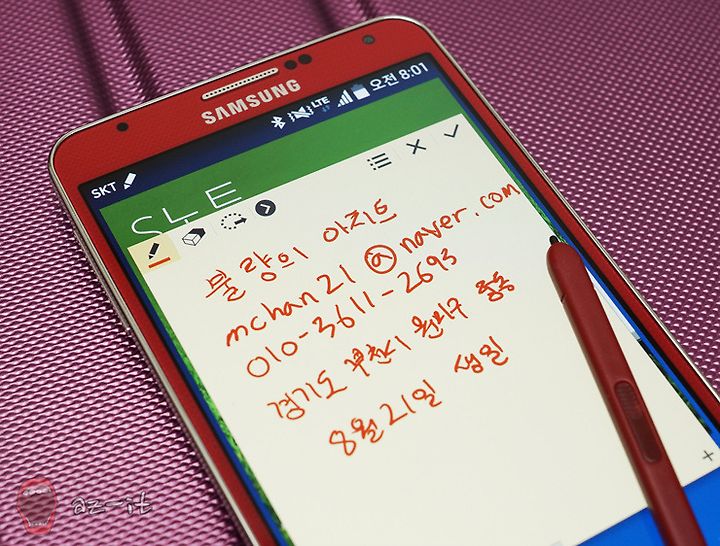 SAMSUNG
SKT LTE 오전 8:01
S노트
불량의 아지트
mchan21@naver.com
010-3611-2693
경기도 부천시 원미구 중동
8월 21일 생일
az-it